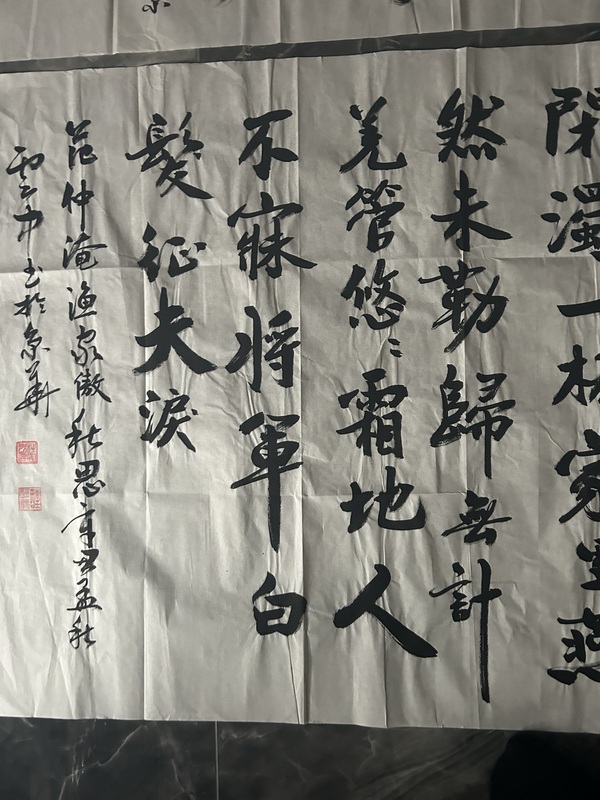 閉濁一杯家里燕
然未勒歸無計
羌管悠〻霜地人
不寐將軍白
髮征夫淚
范仲淹渔家傲秋思辛丑孟秋
书於京華